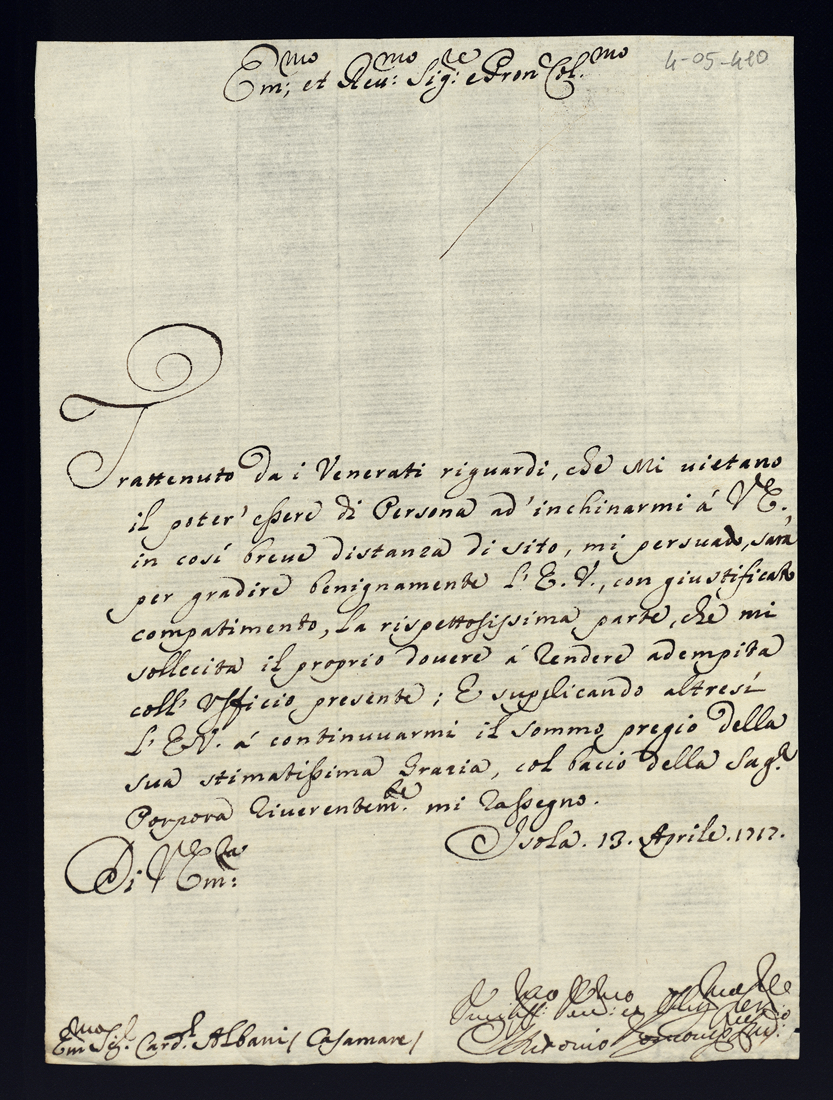 4-05-410
Em:mo et Reu:mo Sig:re e Pron Col.mo
Trattenuto da i Venerati riguardi, che Mi uietano
il poter' essere di Persona ad' inchinarmi á V.E.,
in cosí breue distanza di sito, mi persuado, sará
per gradire benignamente l'E.V., con giustificato
compatimento, la rispettosissima parte, che mi
sollecita il proprio douere á rendere adempita
coll' Vfficio presente; E suplicando altresí
l'E.V. á continuuarmi il sommo pregio della
sua stimatissima Grazia, col bacio della Sag.a
Porpora riuerentem.te mi rassegno.
Isola. 13. Aprile. 1717.
Di V. Em:za
Em.mo Sig.r Card.l Albani / Casamare /
Antonio